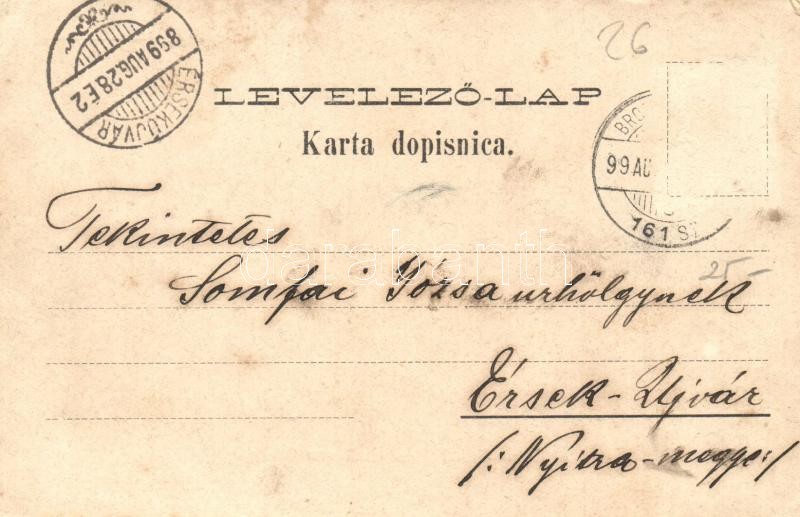 26
899 AUG. 28 É 2
ÉRSEKÚJVÁR
LEVELEZŐ-LAP
Karta dopisnica.
99 AU
161 SZ
Tekintetes
darabanth
25-
Somfai Józsa urhölgynek
Érsek-Ujvár
/: Nyitra-megye :/